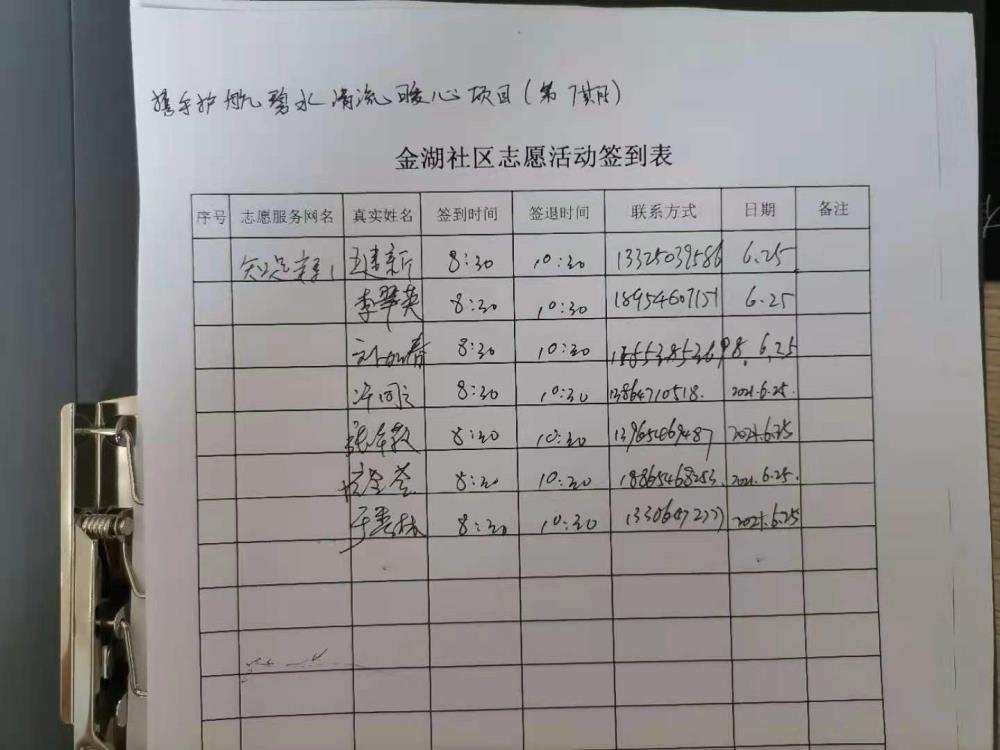 携手护航碧水清流暖心项目(第7期)
金湖社区志愿活动签到表
序号 志愿服务网名 真实姓名 签到时间 签退时间 联系方式 日期 备注
8:30 10:30 13325039586 6.25
李翠英 8:30 10:30 18954607151 6.25
8:30 10:30 6.25
8:30 10:30 13864710518. 2021.6.25.
8:30 10:30 13965469487 2021.6.25
8:30 10:30 18865468253. 2021.6.25.
8:30 10:30 2021.6.25